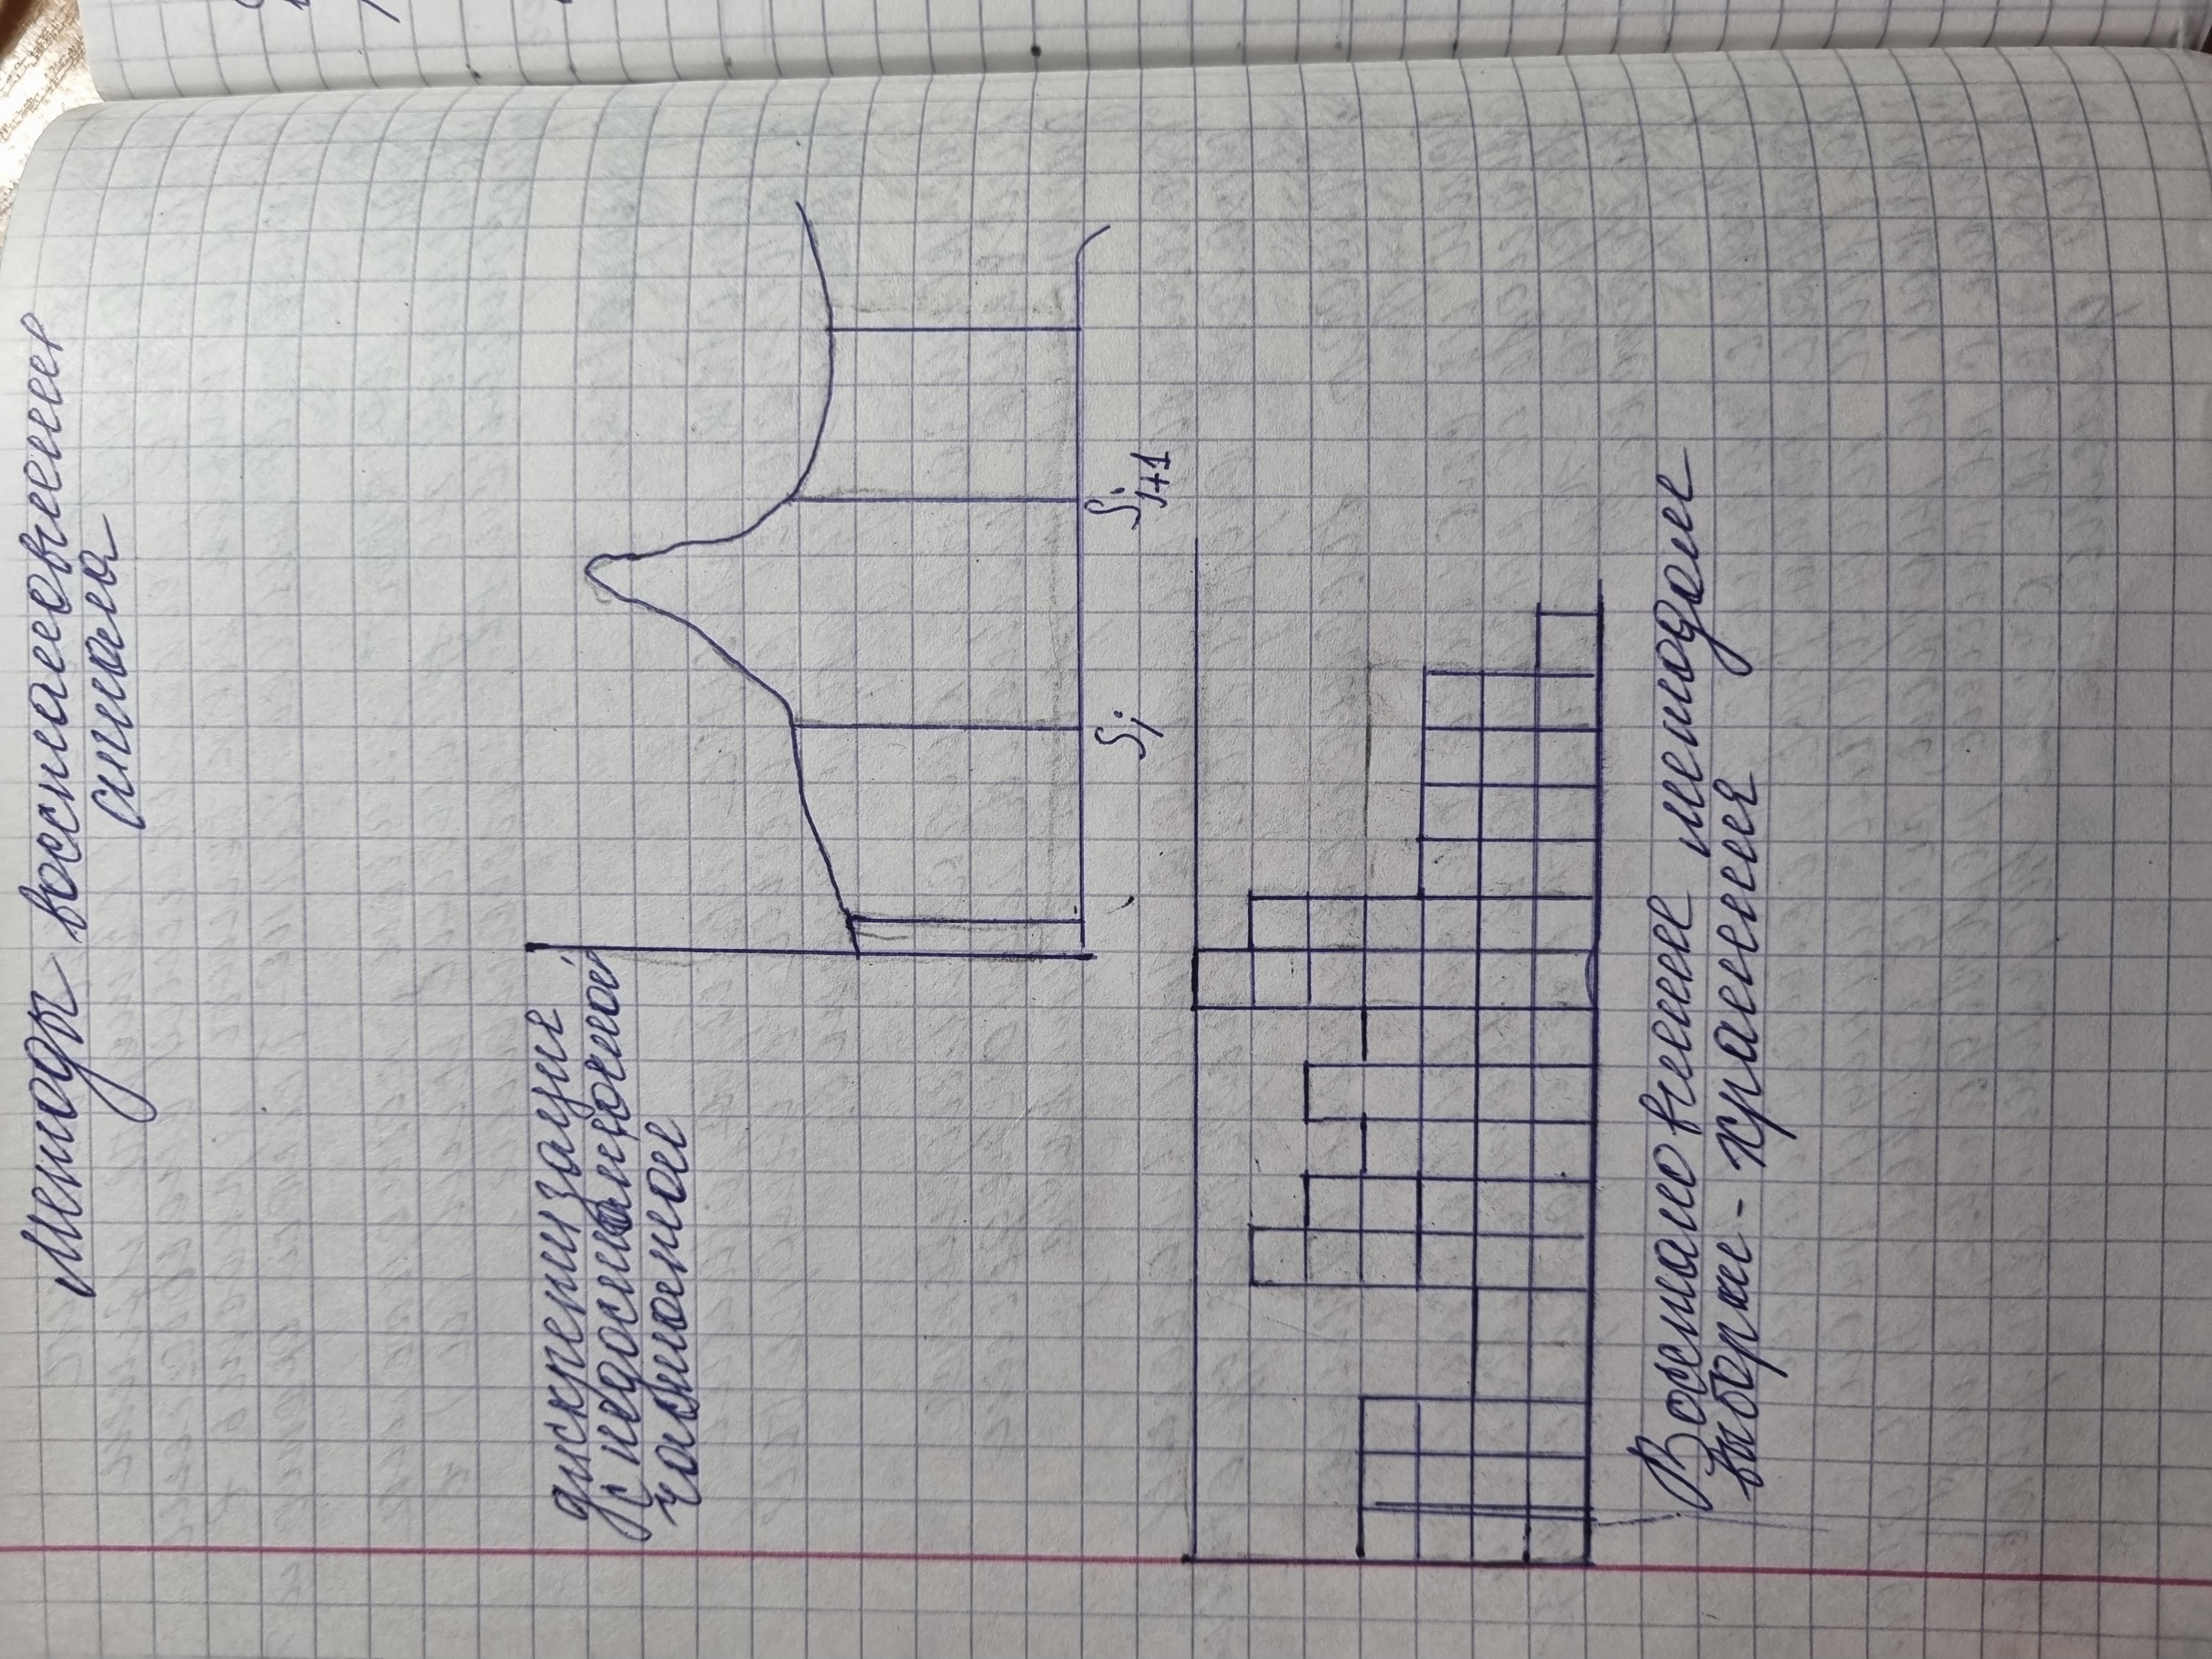 Методы восстановления
сигнала
дискретизация
с недостаточной
частотой
Si
Si+1
Восстановление методом
выборки - хранения